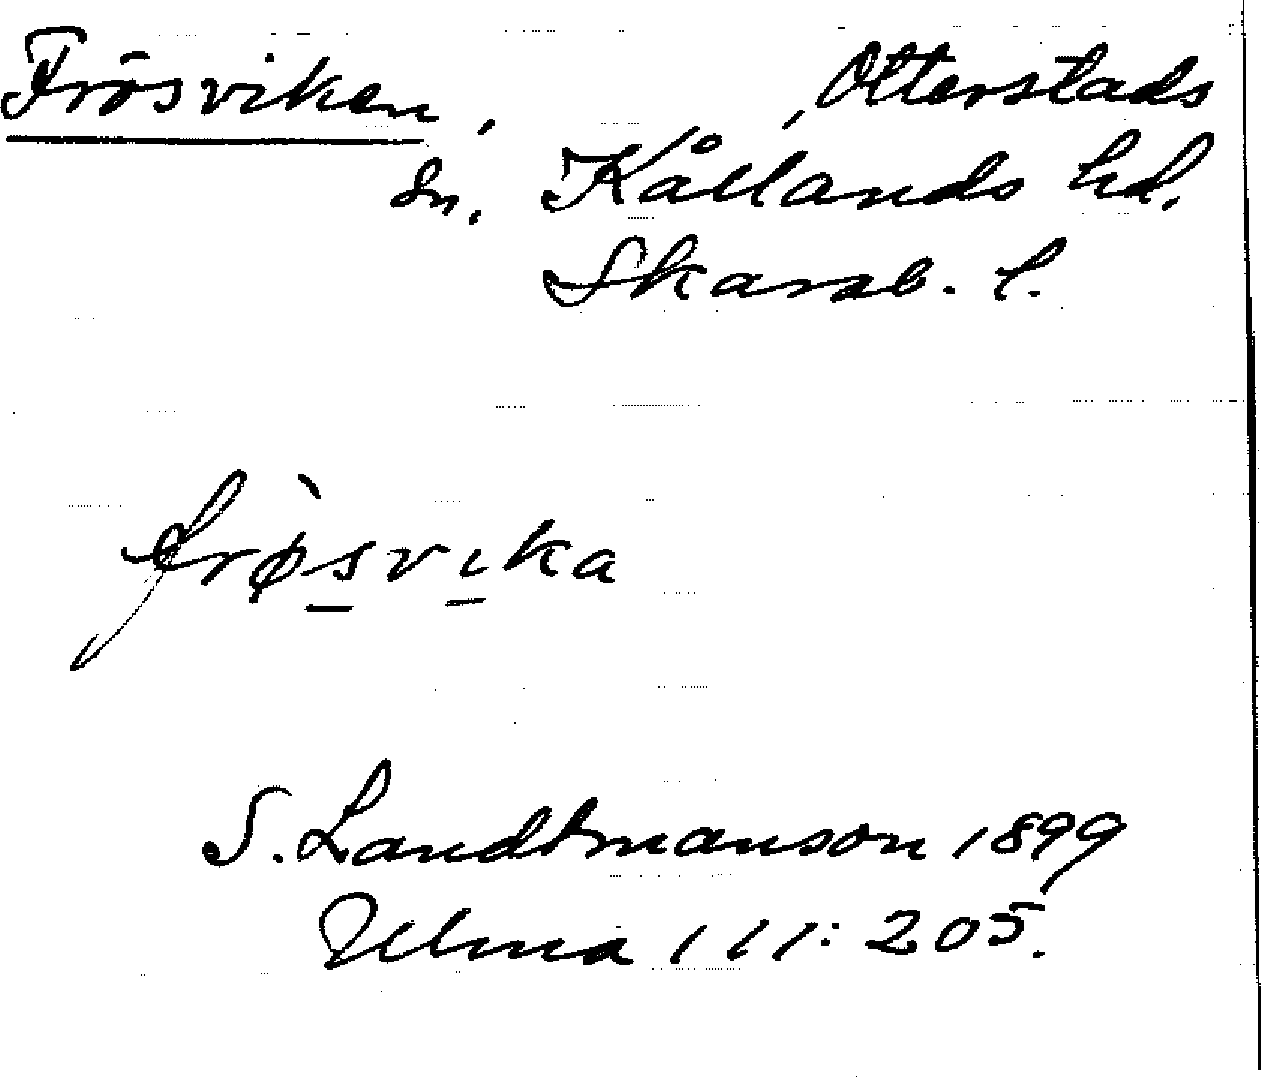 Frösviken, , Otterstads
sn. Kållands hd.
Skarab. l.
frø̀svıka
S. Landtmanson 1899
Ulma 111: 205.